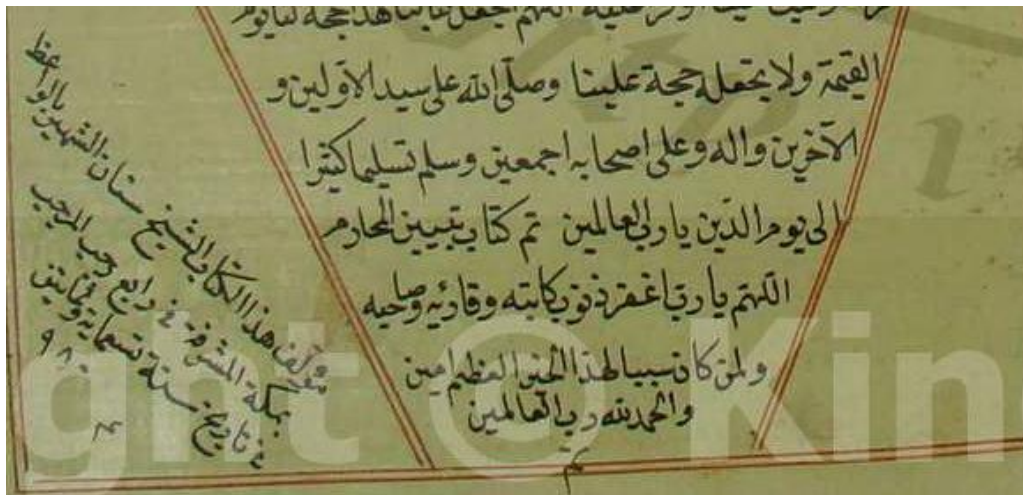 اللهم اجعل كتابنا هذا حجة لنا يوم
القيمة ولا تجعله حجة علينا وصلى الله على سيد الاولين و
الآخرين واله وعلى اصحابه اجمعين وسلم تسليما كثيرا
الى يوم الدين يا رب العالمين تم كتاب تبيين المحارم
اللهم يا رب اغفر ذنوب كاتبه وقارئه وصاحبه
ولمن كان سببا لهذا الخير العظيم امين
والحمد لله رب العالمين
م
مؤلف هذا الكتاب الشيخ سنان الشهير بالواعظ
بمكة المشرفة في رابع رجب المرجب
في تاريخ سنة تسعماية وثمانين
٩٨٠
ght © Kin